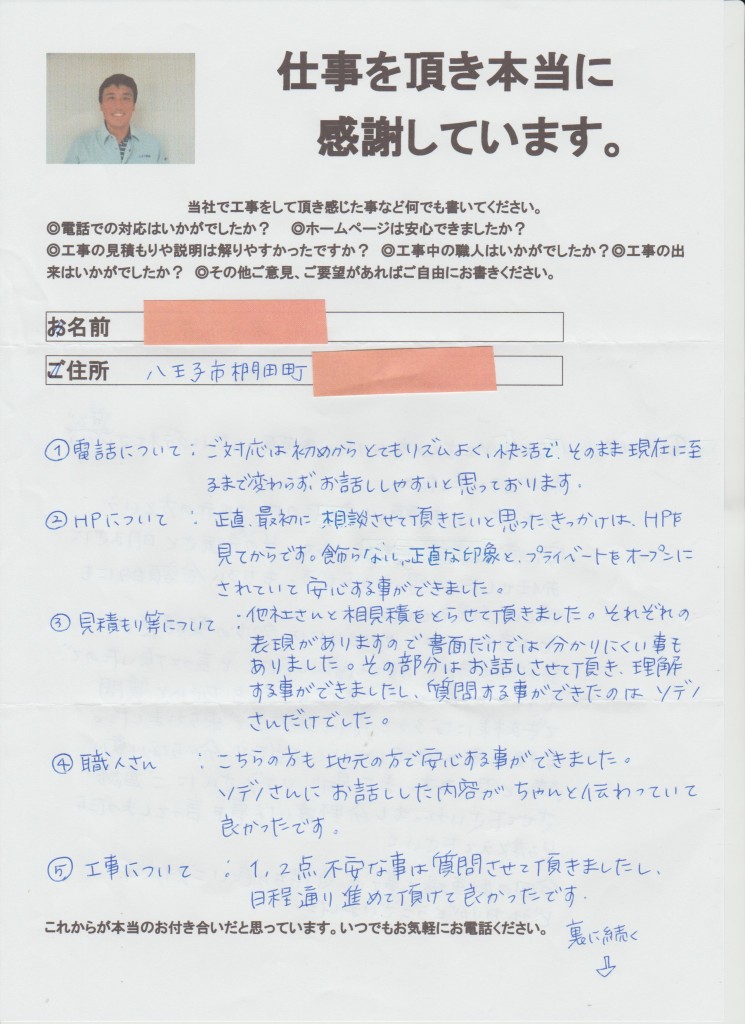 仕事を頂き本当に
感謝しています。
当社で工事をして頂き感じた事など何でも書いてください。
◎電話での対応はいかがでしたか？ ◎ホームページは安心できましたか？
◎工事の見積もりや説明は解りやすかったですか？ ◎工事中の職人はいかがでしたか？◎工事の出
来はいかがでしたか？ ◎その他ご意見、ご要望があればご自由にお書きください。
お名前
ご住所 八王子市椚田町
①電話について：ご対応は初めからとてもリズムよく、快活で、そのまま現在に至
るまで変わらずお話ししやすいと思っております。
②HPについて：正直、最初に相談させて頂きたいと思ったきっかけは、HPを
見てからです。飾らないし、正直な印象と、プライベートをオープンに
されていて安心する事ができました。
③見積もり等について：他社さんと相見積をとらせて頂きました。それぞれの
表現がありますので書面だけでは分かりにくい事も
ありました。その部分はお話しさせて頂き、理解
する事ができましたし、質問する事ができたのはソデノ
さんだけでした。
④職人さん：こちらの方も地元の方で安心する事ができました。
ソデノさんにお話しした内容がちゃんと伝わっていて
良かったです。
⑤工事について：1,2点不安な事は質問させて頂きましたし、
日程通り進めて頂けて良かったです。
これからが本当のお付き合いだと思っています。いつでもお気軽にお電話ください。
裏に続く
⇩